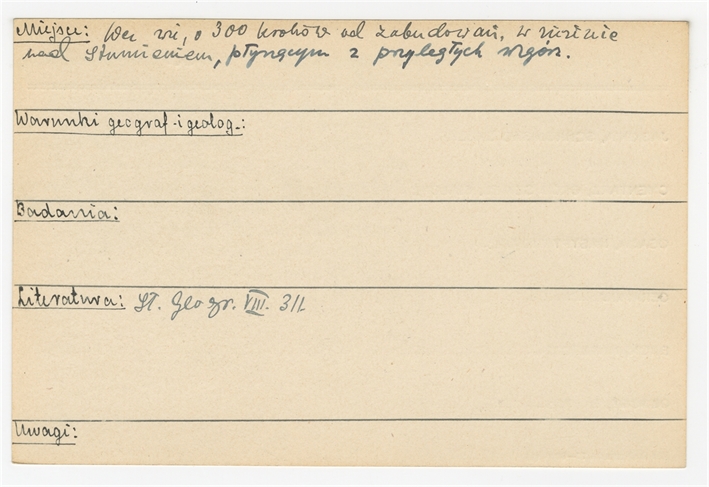 Miejsce: We wsi, o 300 kroków od zabudowań, w nizinie
nad strumieniem, płynącym z przyległych wzgórz.
Warunki geograf. i geolog.:
Badania:
Literatura: Sł. Geogr. VIII.
Uwagi: